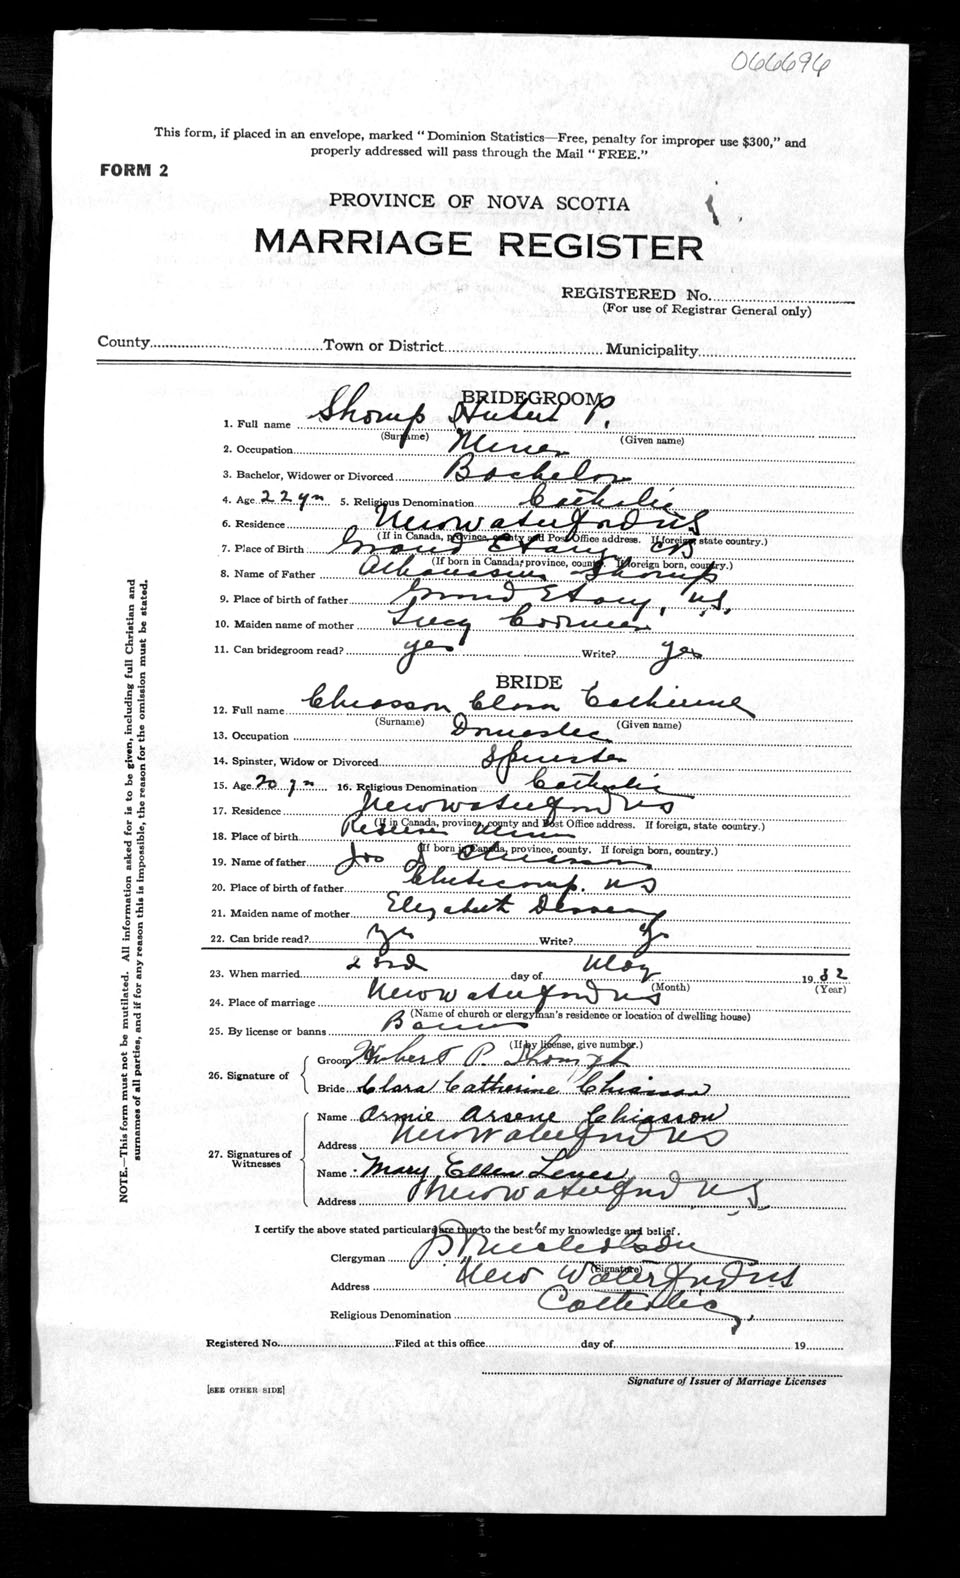 066696
This form, if placed in an envelope, marked "Dominion Statistics—Free, penalty for improper use $300," and
properly addressed will pass through the Mail "FREE."
FORM 2
PROVINCE OF NOVA SCOTIA
MARRIAGE REGISTER
REGISTERED No.
(For use of Registrar General only)
County Town or District Municipality
BRIDEGROOM
1. Full name Shomp Hubert P.
(Surname) (Given name)
2. Occupation Miner
3. Bachelor, Widower or Divorced Bachelor
4. Age 22 yrs 5. Religious Denomination Catholic
6. Residence New Waterford NS
(If in Canada, province, county and Post Office address. If foreign, state country.)
7. Place of Birth Grand Etang CB
(If born in Canada, province, county. If foreign born, country.)
8. Name of Father Athanasius Shomp
9. Place of birth of father Grand Etang, N.S.
10. Maiden name of mother Lucy Cormier
11. Can bridegroom read? yes Write? yes
BRIDE
12. Full name Chiasson Clara Catherine
(Surname) (Given name)
13. Occupation Domestic
14. Spinster, Widow or Divorced Spinster
15. Age 20 yrs 16. Religious Denomination Catholic
17. Residence New Waterford NS
(If in Canada, province, county and Post Office address. If foreign, state country.)
18. Place of birth Reserve Mines
(If born in Canada, province, county. If foreign born, country.)
19. Name of father Jos J Chiasson
20. Place of birth of father Cheticamp. NS
21. Maiden name of mother Elizabeth
22. Can bride read? yes Write? yes
23. When married 23rd day of May 1932
(Month) (Year)
24. Place of marriage New Waterford NS
(Name of church or clergyman's residence or location of dwelling house)
25. By license or banns Banns
(If by license, give number.)
26. Signature of Groom Hubert P.
Bride Clara Catherine Chiasson
27. Signatures of Witnesses Name Armie Arsene Chiasson
Address New Waterford NS
Name Mary Ellen
Address New Waterford N S
I certify the above stated particulars are true to the best of my knowledge and belief.
Clergyman
(Signature)
Address New Waterford NS
Religious Denomination Catholic
Registered No. Filed at this office day of 19
Signature of Issuer of Marriage Licenses
[SEE OTHER SIDE]
NOTE.—This form must not be mutilated. All information asked for is to be given, including full Christian and
surnames of all parties, and if for any reason this is impossible, the reason for the omission must be stated.